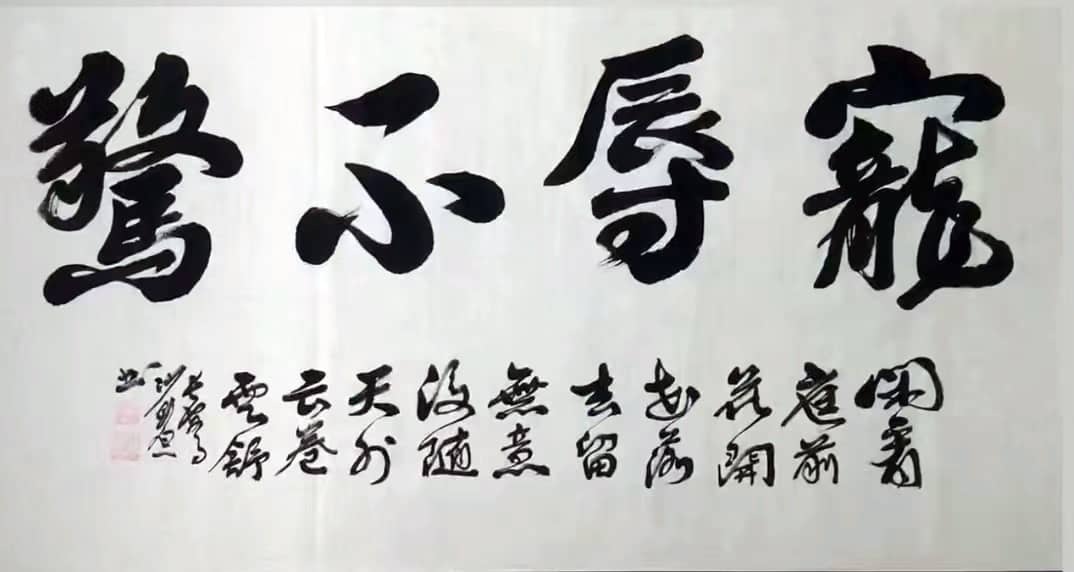 寵辱不驚
閑看
庭前
花開
花落
去留
無意
漫隨
天外
云卷
雲舒